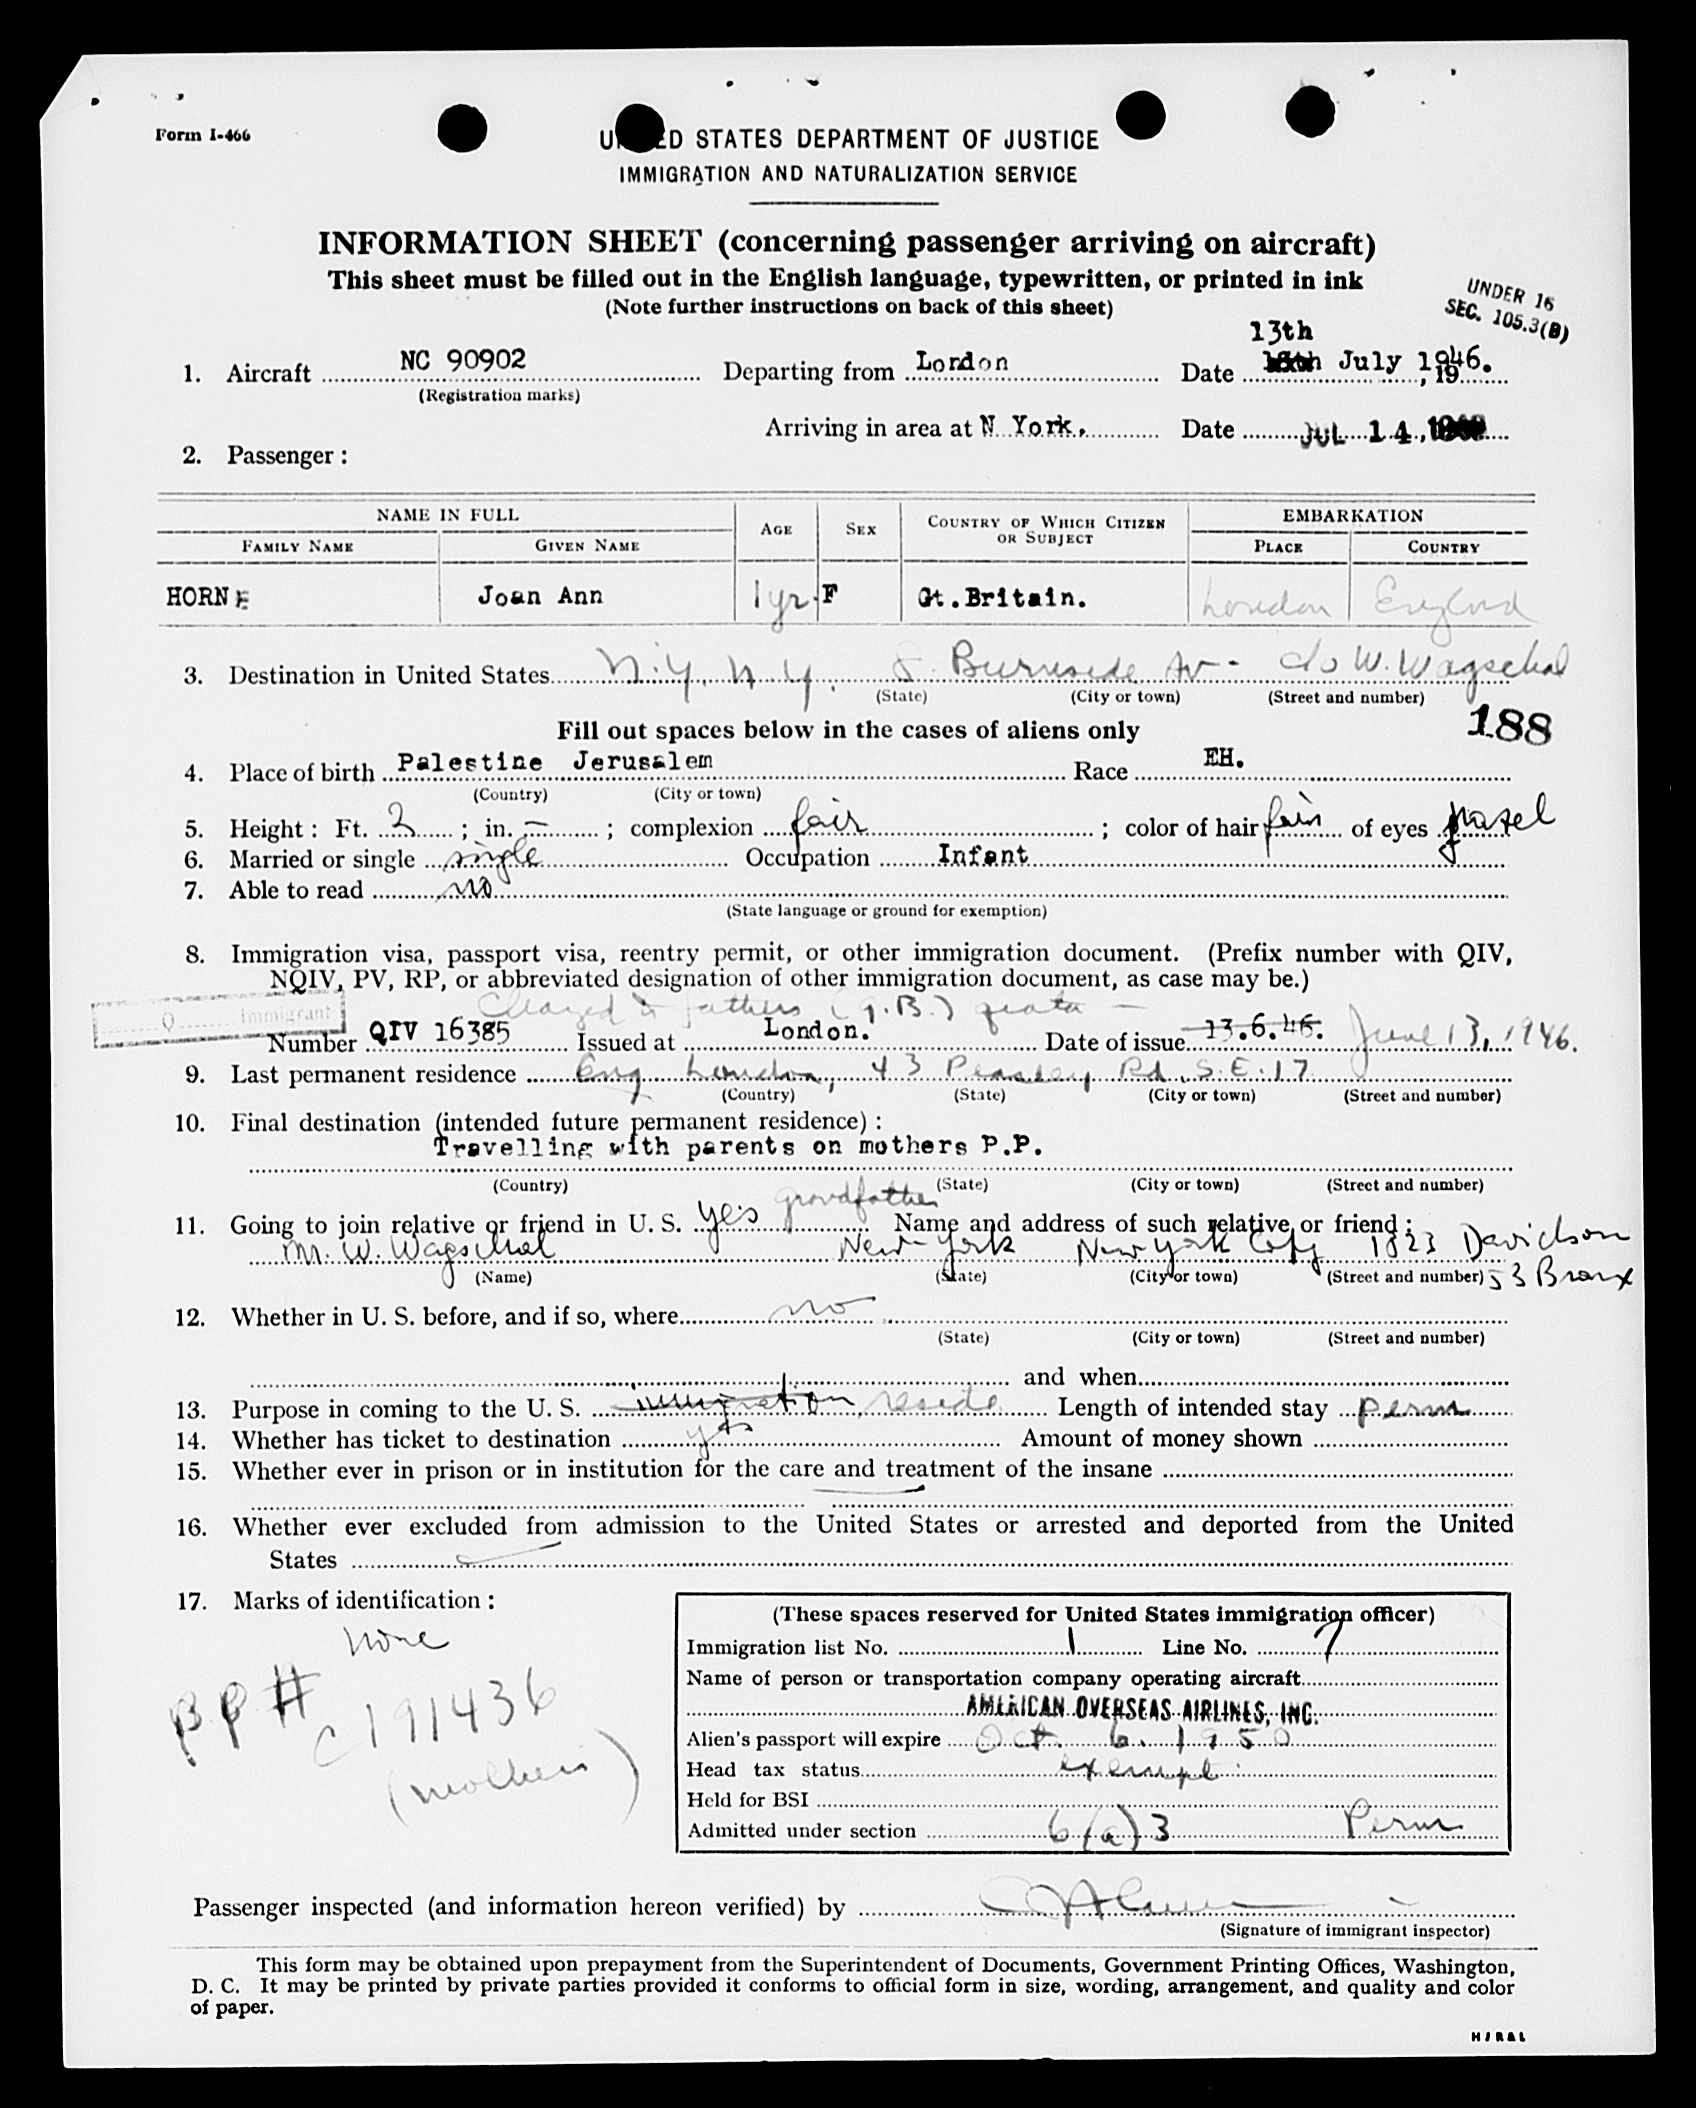 Form I-466
UNITED STATES DEPARTMENT OF JUSTICE
IMMIGRATION AND NATURALIZATION SERVICE
INFORMATION SHEET (concerning passenger arriving on aircraft)
This sheet must be filled out in the English language, typewritten, or printed in ink
(Note further instructions on back of this sheet)
UNDER 16
SEC. 105.3(B)
13th
1. Aircraft NC 90902 Departing from London Date July 1946.
(Registration marks)
Arriving in area at N York. Date JUL 14,
2. Passenger:
NAME IN FULL AGE SEX COUNTRY OF WHICH CITIZEN OR SUBJECT EMBARKATION
FAMILY NAME GIVEN NAME PLACE COUNTRY
HORNE Joan Ann 1 yr. F Gt.Britain. London England
3. Destination in United States N.Y. N.Y. 8. Burnside Av- c/o W. Wagschal
(State) (City or town) (Street and number)
Fill out spaces below in the cases of aliens only 188
4. Place of birth Palestine Jerusalem Race EH.
(Country) (City or town)
5. Height: Ft. 2; in. –; complexion fair; color of hair fair of eyes hazel
6. Married or single single Occupation Infant
7. Able to read no
(State language or ground for exemption)
8. Immigration visa, passport visa, reentry permit, or other immigration document. (Prefix number with QIV,
NQIV, PV, RP, or abbreviated designation of other immigration document, as case may be.)
Q Immigrant
Charged to fathers (G.B.) quota –
Number QIV 16385 Issued at London. Date of issue 13.6.46. June 13, 1946.
9. Last permanent residence Eng London, 43 Rd. S.E. 17
(Country) (State) (City or town) (Street and number)
10. Final destination (intended future permanent residence):
Travelling with parents on mothers P.P.
(Country) (State) (City or town) (Street and number)
grandfather
11. Going to join relative or friend in U. S. yes Name and address of such relative or friend:
Mr. W. Wagschal New York New York City 1823 Davidson
(Name) (State) (City or town) (Street and number) 53 Bronx
12. Whether in U. S. before, and if so, where no
(State) (City or town) (Street and number)
and when
13. Purpose in coming to the U. S. immigration reside Length of intended stay perm
14. Whether has ticket to destination yes Amount of money shown
15. Whether ever in prison or in institution for the care and treatment of the insane
16. Whether ever excluded from admission to the United States or arrested and deported from the United
States
17. Marks of identification:
none
PP# C191436
(mothers)
(These spaces reserved for United States immigration officer)
Immigration list No. 1 Line No. 7
Name of person or transportation company operating aircraft
AMERICAN OVERSEAS AIRLINES, INC.
Alien's passport will expire Oct. 6. 1950
Head tax status exempt
Held for BSI
Admitted under section 6(a)3 Perm
Passenger inspected (and information hereon verified) by
(Signature of immigrant inspector)
This form may be obtained upon prepayment from the Superintendent of Documents, Government Printing Offices, Washington,
D. C. It may be printed by private parties provided it conforms to official form in size, wording, arrangement, and quality and color
of paper.